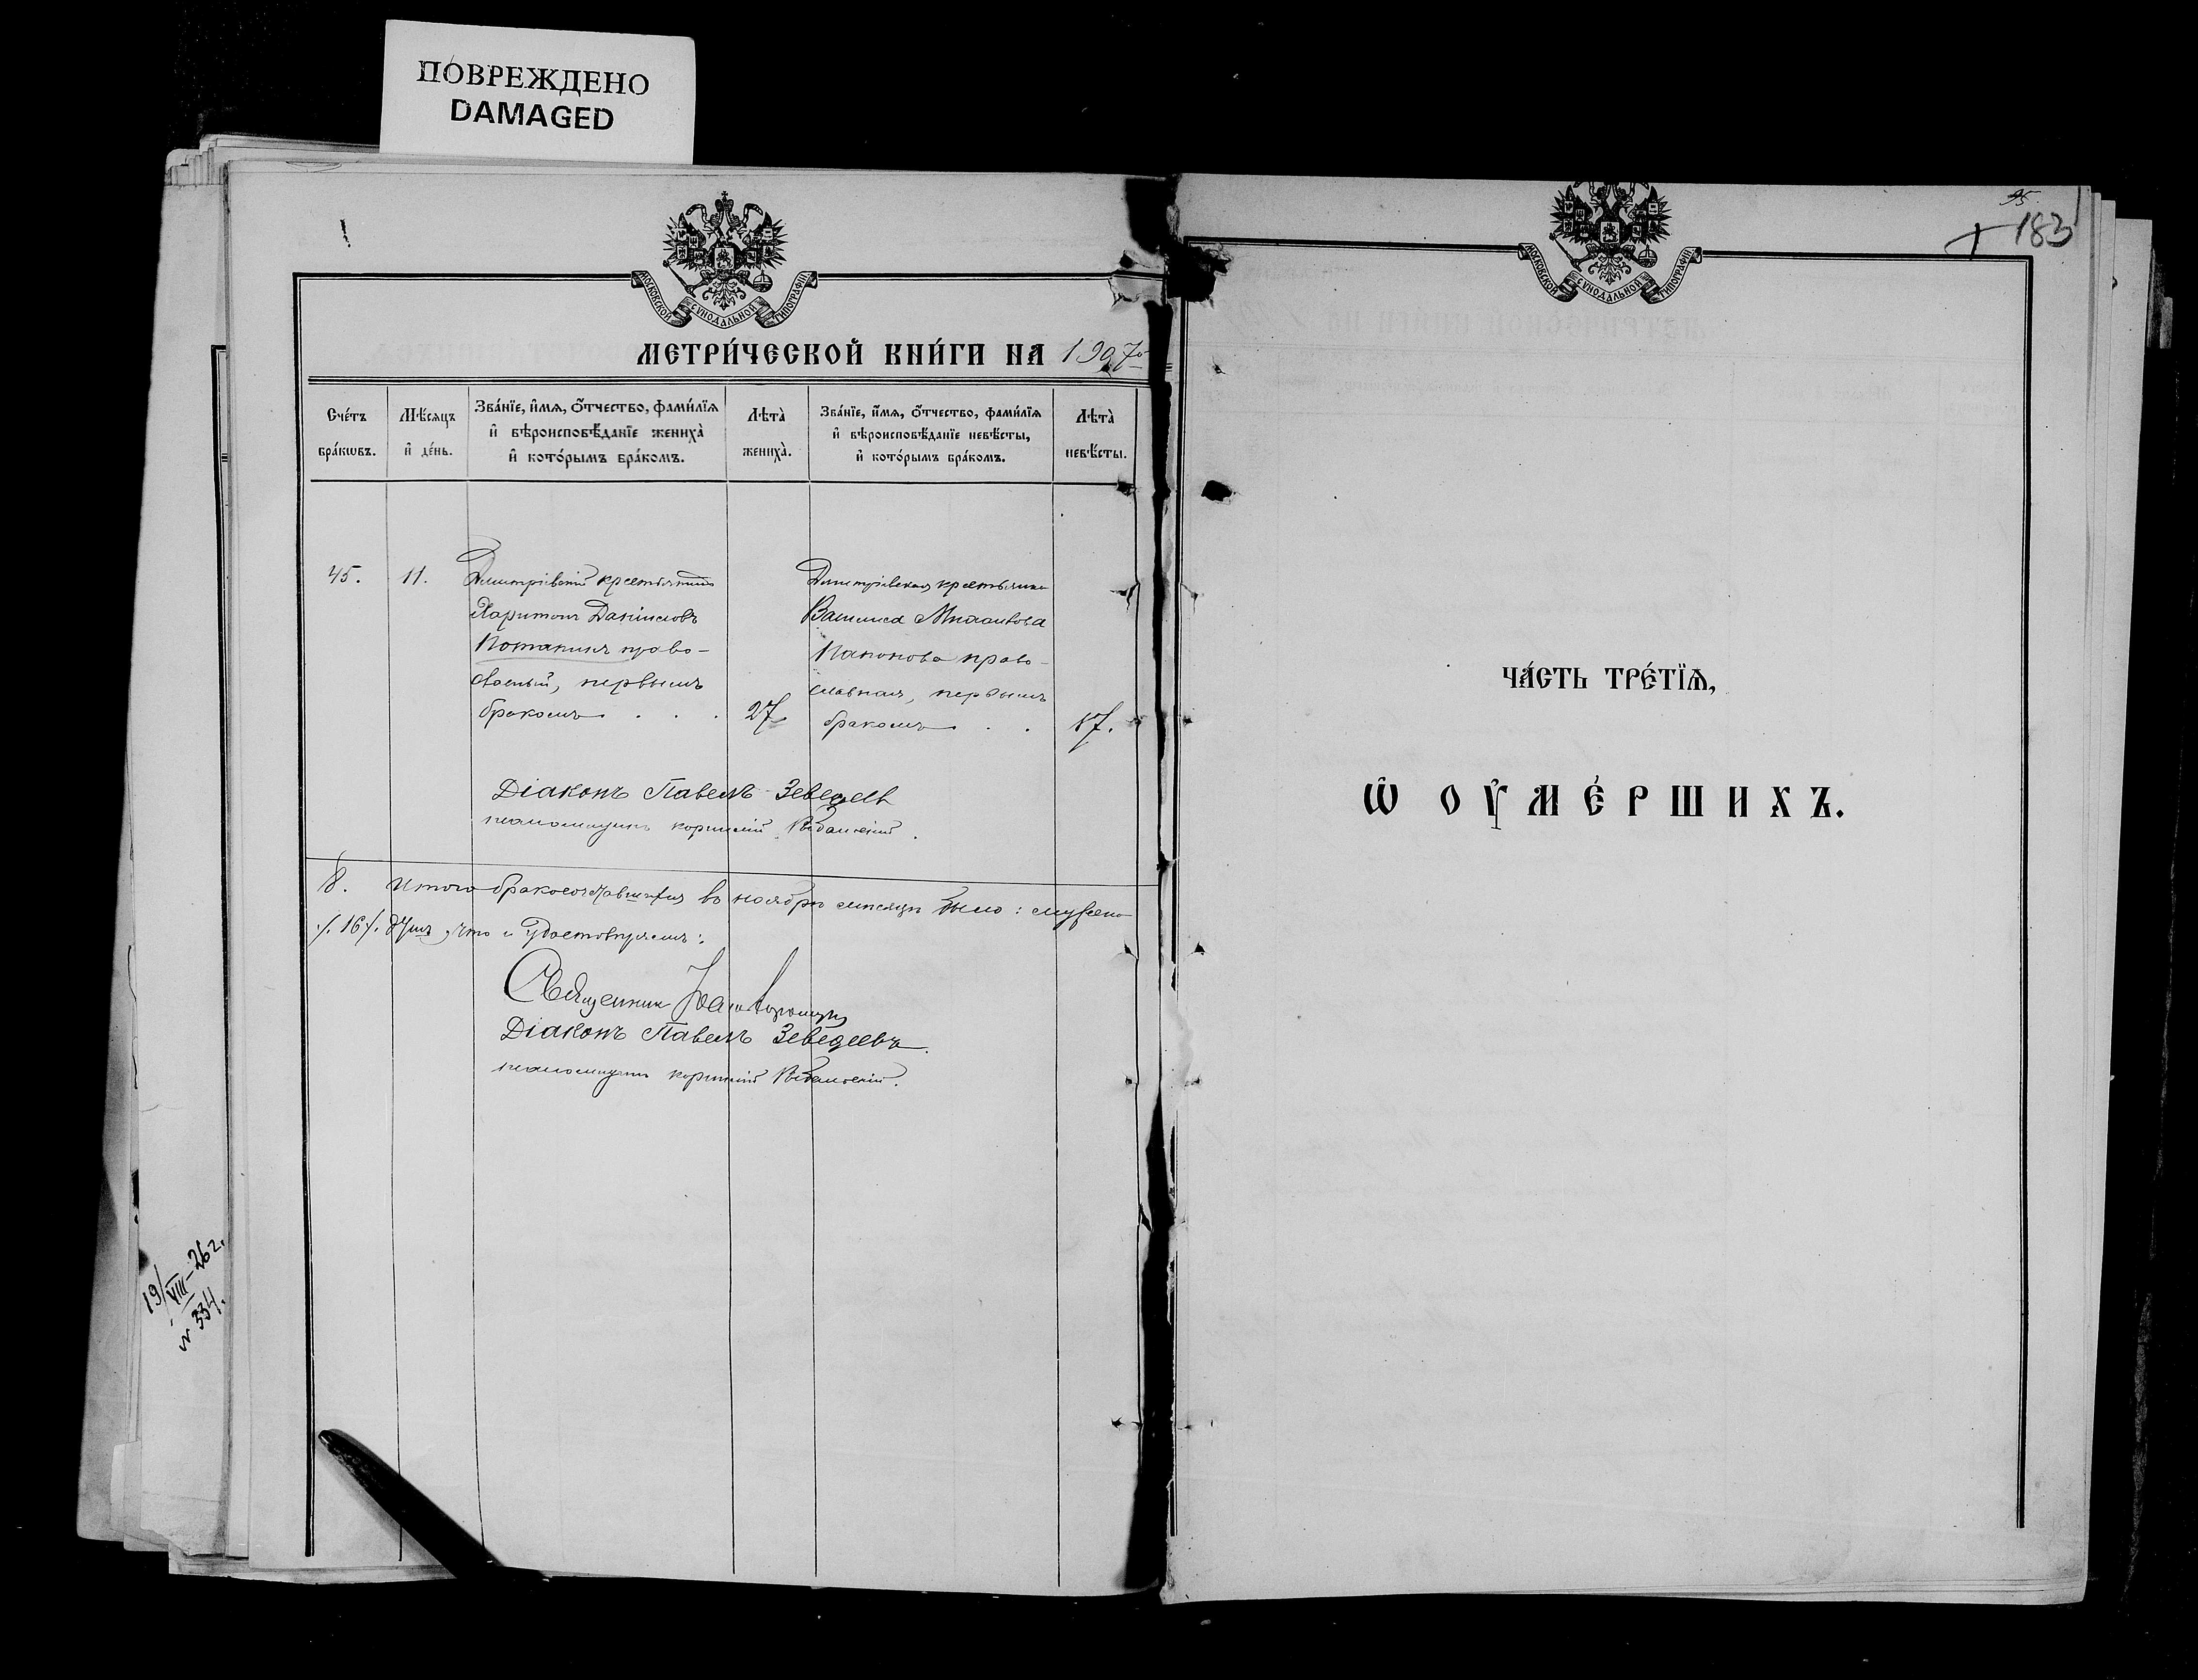 ПОВРЕЖДЕНО
DAMAGED
МОСКОВСКОЙ СѴНОДАЛЬНОЙ ТИПОГРАФІИ
МЕТРИ́ЧЕСКОЙ КНИ́ГИ НА 1907
Сче́тъ бра́кѡвъ.
Мѣ́сѧцъ и҆ де́нь.
Зва́нїе, и҆́мѧ, ѻ҆́тчество, фами́лїѧ
и҆ вѣроисповѣ́данїе жениха̀
и҆ кото́рымъ бра́комъ.
Лѣта̀ жениха̀.
Зва́нїе, и҆́мѧ, ѻ҆́тчество, фами́лїѧ
и҆ вѣроисповѣ́данїе невѣ́сты,
и҆ кото́рымъ бра́комъ.
Лѣта̀ невѣ́сты.
45.
11.
Дмитріевскій крестьянинъ
Харитонъ Даніиловъ
Потапинъ право-
славный, первымъ
бракомъ . . .
27
Дмитріевская крестьянка
Василиса
право-
славная, первымъ
бракомъ . .
17.
Діаконъ Павелъ Зеведеевъ
псаломщикъ
8. Итого бракосочетавшихся въ ноябрѣ мѣсяцѣ было: мужеска
16 что и удостовѣряемъ:
Священник
Діаконъ Павелъ Зеведеевъ.
псаломщикъ
19/VIII–26 г.
№ 334.
95.
183
МОСКОВСКОЙ СѴНОДАЛЬНОЙ ТИПОГРАФІИ
ЧА́СТЬ ТРЕ́ТЇѦ,
Ѡ҆ ОУ҆МЕ́РШИХЪ.